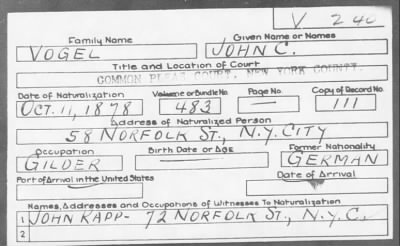 V 240
Family Name Given Name or Names
VOGEL JOHN C.
Title and Location of Court
COMMON PLEAS COURT, NEW YORK COUNTY.
Date of Naturalization Volume or Bundle No. Page No. Copy of Record No.
OCT. 11, 1878 483 — 111
Address of Naturalized Person
58 NORFOLK ST., N.Y. CITY
Occupation Birth Date or Age Former Nationality
GILDER — GERMAN
Port of Arrival in the United States Date of Arrival
Names, Addresses and Occupations of Witnesses To Naturalization
1 JOHN KAPP - 72 NORFOLK ST., N.Y.C.
2